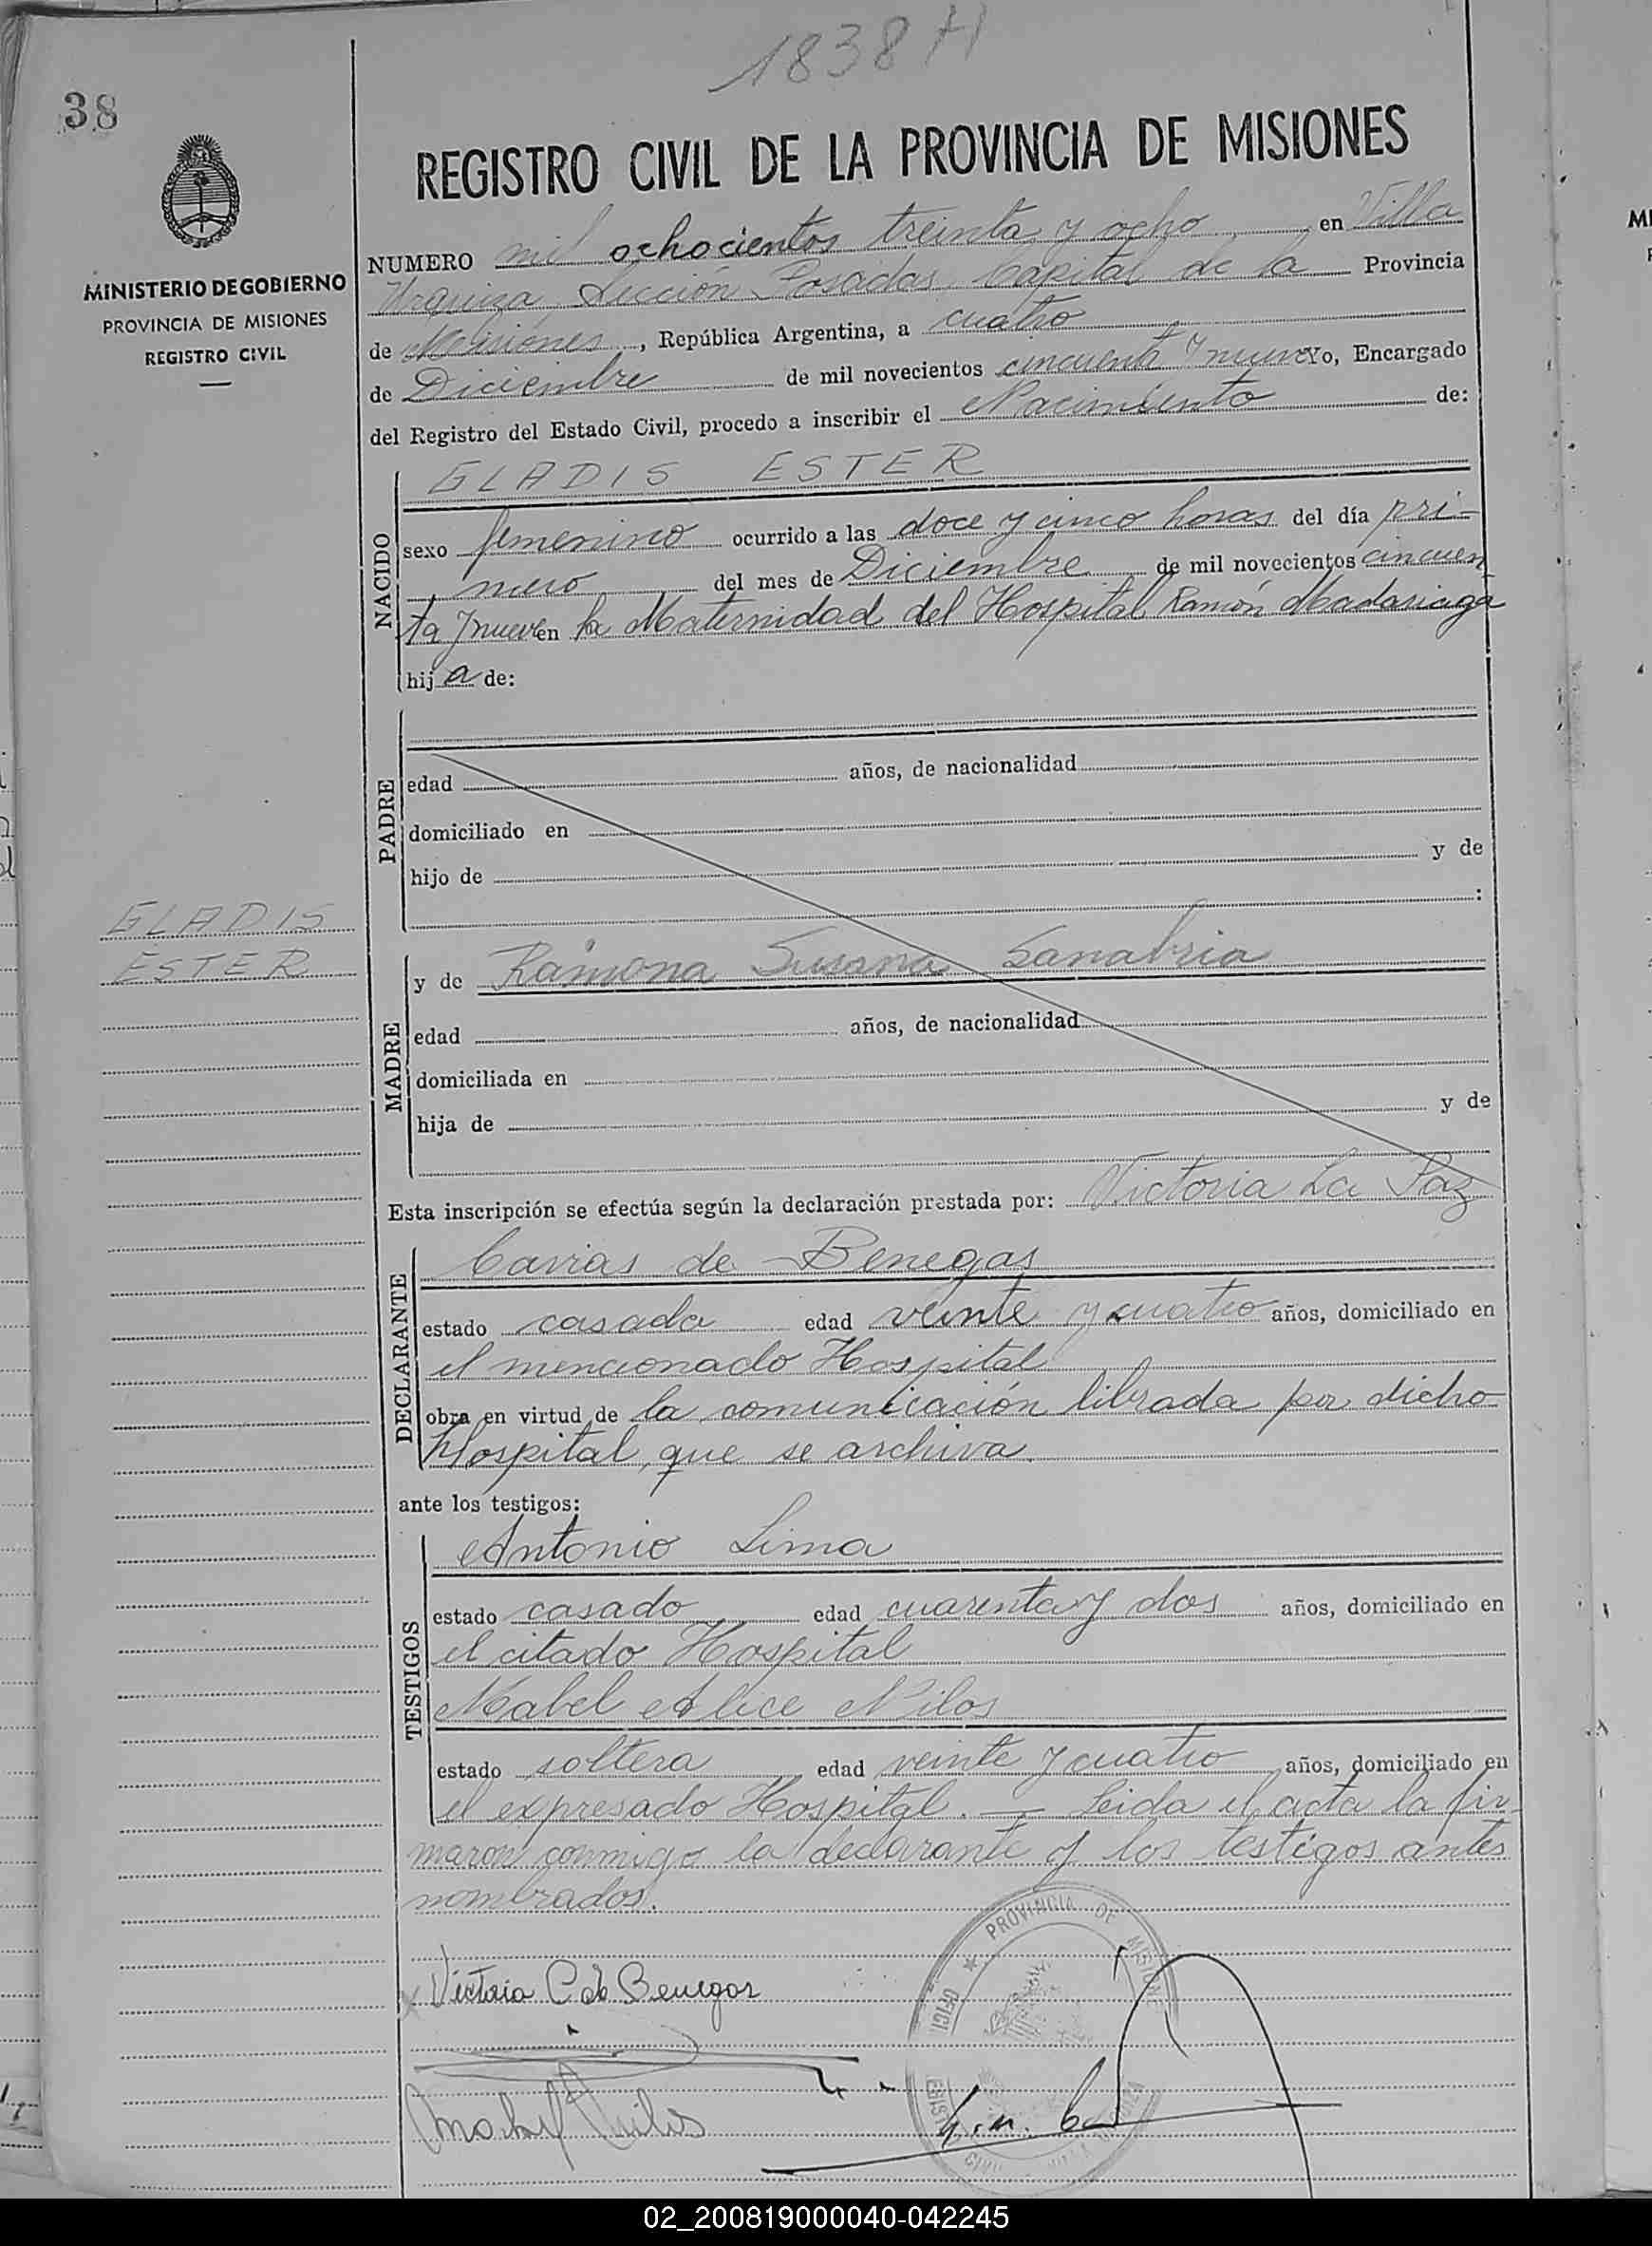 1838 H
38
REGISTRO CIVIL DE LA PROVINCIA DE MISIONES
MINISTERIO DE GOBIERNO
PROVINCIA DE MISIONES
REGISTRO CIVIL
NUMERO mil ochocientos treinta y ocho en Villa
Urquiza, Sección Posadas, Capital de la Provincia
de Misiones, República Argentina, a cuatro
de Diciembre de mil novecientos cincuenta y nueve Yo, Encargado
del Registro del Estado Civil, procedo a inscribir el Nacimiento de:
NACIDO
GLADIS ESTER
sexo femenino ocurrido a las doce y cinco horas del día pri-
mero del mes de Diciembre de mil novecientos cincuen
ta y nueve en la Maternidad del Hospital Ramón Madariaga
hija de:
PADRE
edad años, de nacionalidad
domiciliado en
hijo de y de
:
GLADIS
ESTER
MADRE
y de Ramona Susana Sanabria
edad años, de nacionalidad
domiciliada en
hija de y de
Esta inscripción se efectúa según la declaración prestada por: Victoria La Paz
DECLARANTE
Carias de Benegas
estado casada edad veinte y cuatro años, domiciliado en
el mencionado Hospital
obra en virtud de la comunicación librada por dicho
Hospital, que se archiva.
ante los testigos:
TESTIGOS
Antonio Lima
estado casado edad cuarenta y dos años, domiciliado en
el citado Hospital
Mabel Alice Nilos
estado soltera edad veinte y cuatro años, domiciliado en
el expresado Hospital. — Leida el acta la fir-
maron conmigo la declarante y los testigos antes
nombrados.
PROVINCIA DE MISIONES
Victoria C de Benegas
02_200819000040-042245